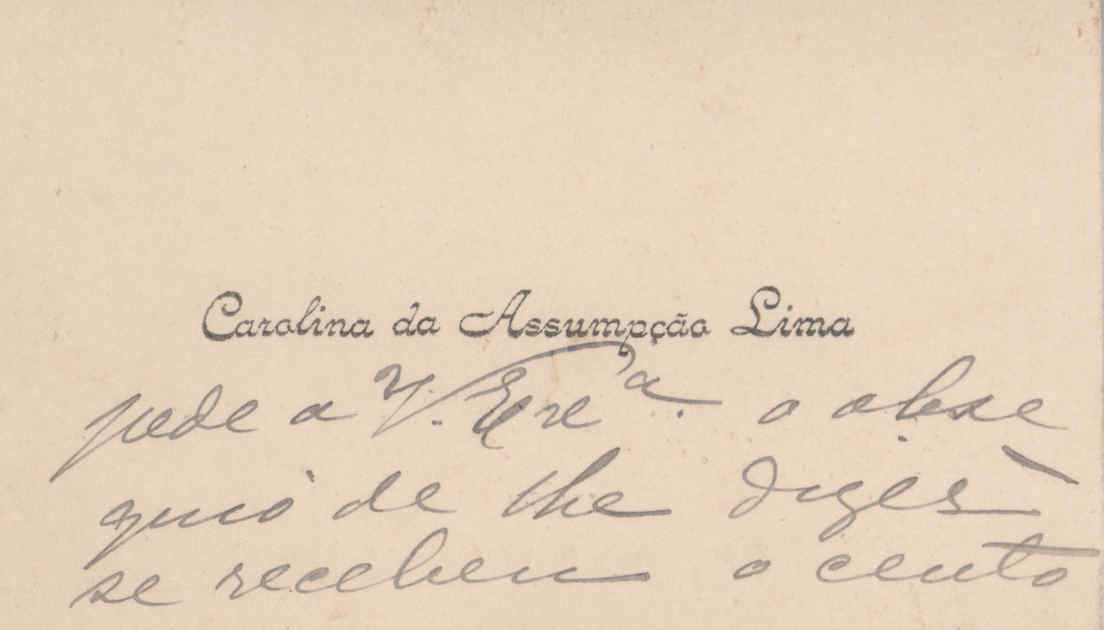 Carolina da Assumpção Lima
pede a V. Exc.ª o obse
quio de lhe dizer
se recebeu o cento